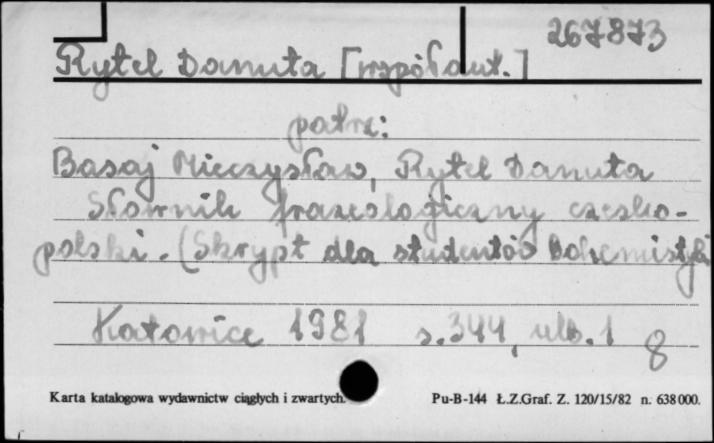 267873
Rytel Danuta [współaut.]
patrz:
Basaj Mieczysław, Rytel Danuta
Słownik frazeologiczny czesko-
polski. (Skrypt dla studentów bohemistyki
Katowice 1981 s. 344, ulb. 1
8
Karta katalogowa wydawnictw ciągłych i zwartych. Pu-B-144 Ł.Z.Graf. Z. 120/15/82 n. 638000.